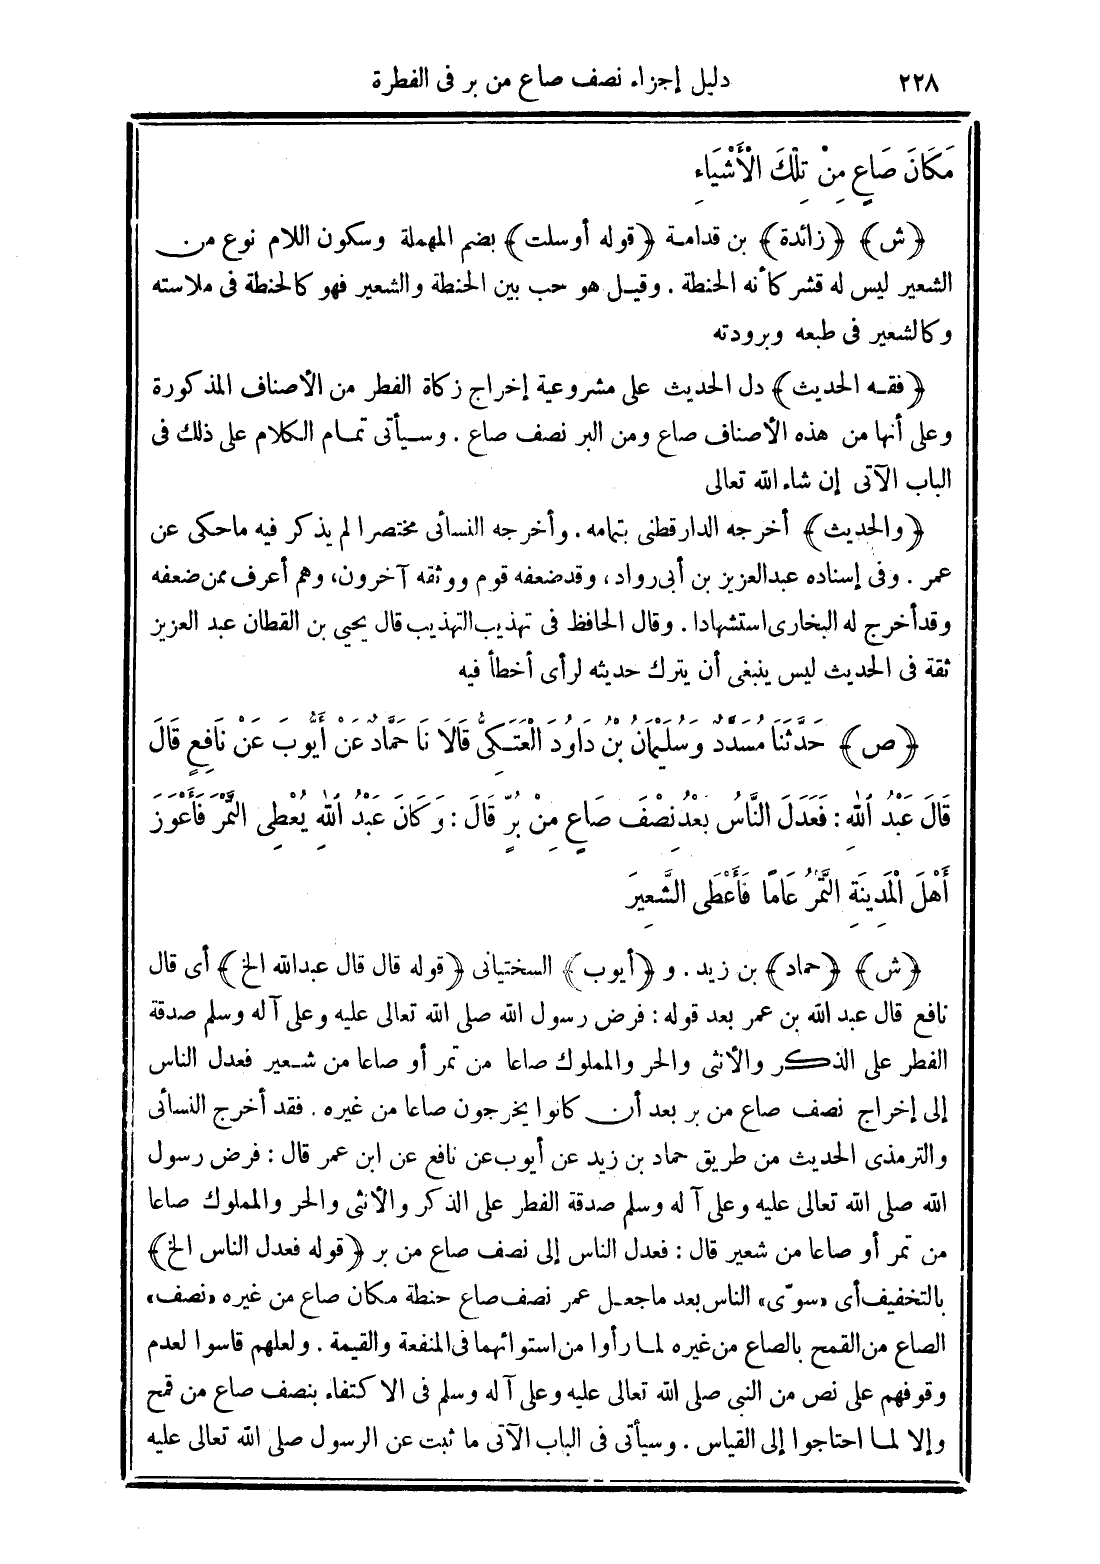 ٢٢٨ دليل إجزاء نصف صاع من بر فى الفطرة
مَكَانَ صَاعٍ مِنْ تِلْكَ الْأَشْيَاءِ
﴿ش﴾ ﴿زائدة﴾ بن قدامة ﴿قوله أوسلت﴾ بضم المهملة وسكون اللام نوع من
الشعير ليس له قشر كأنه الحنطة . وقيل هو حب بين الحنطة والشعير فهو كالحنطة فى ملاسته
وكالشعير فى طبعه وبرودته
﴿فقه الحديث﴾ دل الحديث على مشروعية إخراج زكاة الفطر من الأصناف المذكورة
وعلى أنها من هذه الأصناف صاع ومن البر نصف صاع . وسيأتى تمام الكلام على ذلك فى
الباب الآتى إن شاء الله تعالى
﴿والحديث﴾ أخرجه الدارقطنى بتمامه . وأخرجه النسائى مختصرا لم يذكر فيه ماحكى عن
عمر . وفى إسناده عبدالعزيز بن أبى رواد ، وقدضعفه قوم ووثقه آخرون ، وهم أعرف ممن ضعفه
وقدأخرج له البخارى استشهادا . وقال الحافظ فى تهذيب التهذيب قال يحيى بن القطان عبد العزيز
ثقة فى الحديث ليس ينبغى أن يترك حديثه لرأى أخطأ فيه
﴿ص﴾ حَدَّثَنَا مُسَدَّدٌ وَسُلَيْمَانُ بْنُ دَاوُدَ الْعَتَكِىُّ قَالَا نَا حَمَّادٌ عَنْ أَيُّوبَ عَنْ نَافِعٍ قَالَ
قَالَ عَبْدُ اللهِ : فَعَدَلَ النَّاسُ بَعْدُ نِصْفَ صَاعٍ مِنْ بُرٍّ قَالَ : وَكَانَ عَبْدُ اللهِ يُعْطِى التَّمْرَ فَأَعْوَزَ
أَهْلَ الْمَدِينَةِ التَّمْرُ عَامًا فَأَعْطَى الشَّعِيرَ
﴿ش﴾ ﴿حماد﴾ بن زيد . و ﴿أيوب﴾ السختيانى ﴿قوله قال قال عبدالله الخ﴾ أى قال
نافع قال عبد الله بن عمر بعد قوله : فرض رسول الله صلى الله تعالى عليه وعلى آله وسلم صدقة
الفطر على الذكر والأنثى والحر والمملوك صاعا من تمر أو صاعا من شعير فعدل الناس
إلى إخراج نصف صاع من بر بعد أن كانوا يخرجون صاعا من غيره . فقد أخرج النسائى
والترمذى الحديث من طريق حماد بن زيد عن أيوب عن نافع عن ابن عمر قال : فرض رسول
الله صلى الله تعالى عليه وعلى آله وسلم صدقة الفطر على الذكر والأنثى والحر والمملوك صاعا
من تمر أو صاعا من شعير قال : فعدل الناس إلى نصف صاع من بر ﴿قوله فعدل الناس الخ﴾
بالتخفيف أى «سوّى» الناس بعد ماجعل عمر نصف صاع حنطة مكان صاع من غيره «نصف»
الصاع من القمح بالصاع من غيره لما رأوا من استوائهما فى المنفعة والقيمة . ولعلهم قاسوا لعدم
وقوفهم على نص من النبى صلى الله تعالى عليه وعلى آله وسلم فى الاكتفاء بنصف صاع من قمح
وإلا لما احتاجوا إلى القياس . وسيأتى فى الباب الآتى ما ثبت عن الرسول صلى الله تعالى عليه